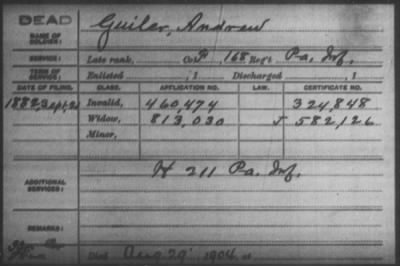 DEAD
NAME OF SOLDIER: Guiler, Andrew
SERVICE: Late rank, Co. F, 168 Reg't Pa. Inf.
TERM OF SERVICE: Enlisted , 1 Discharged , 1
DATE OF FILING. CLASS. APPLICATION NO. LAW. CERTIFICATE NO.
1882, Sept, 21 Invalid, 460,474 324,848
Widow, 813,030 582,126
Minor,
ADDITIONAL SERVICES: H 211 Pa. Inf.
REMARKS:
Died Aug 29 1904, at